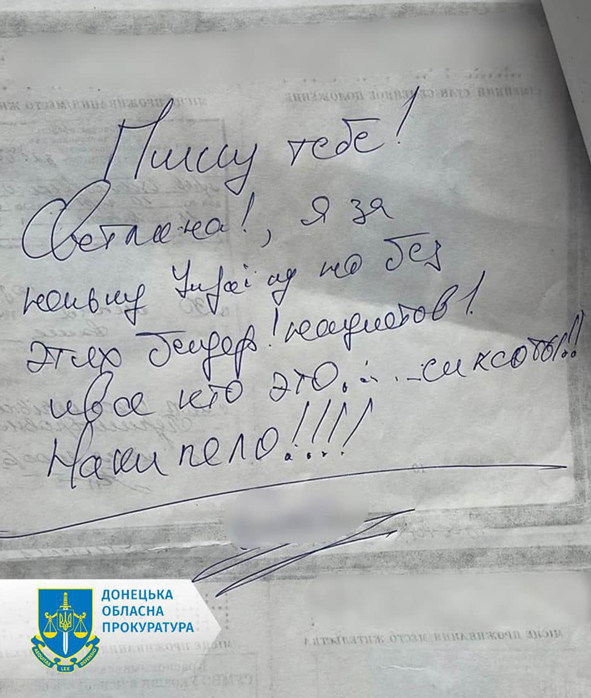 Пишу тебе!
Светлана!, я за
Украіну но без
этих бендер! нацистов!
и все кто это. . . . сиксоты!!
Накипело!!!!
ДОНЕЦЬКА
ОБЛАСНА
ПРОКУРАТУРА